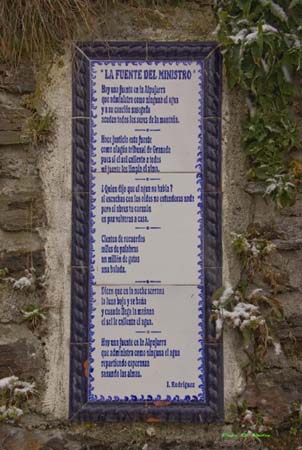 "LA FUENTE DEL MINISTRO"
Hay una fuente en la Alpujarra
que administra como ninguna el agua
y a su canción sosegada
acuden todos los seres de la montaña.
Hace justicia esta fuente
como alagún tribunal de Granada
pues si el sol caliente a todos
mi fuente les limpia el alma.
¿Quien dijo que el agua no habla?
si escuchas con los oídos no entenderas nada
pero si abres tu corazón
en par volveras a casa.
Cientos de recuerdos
miles de palabras
un millón de gotas
una balada.
Dicen que en la noche serrana
la luna baja y se baña
y cuando llega la mañana
el sol le calienta el agua.
Hay una fuente en la Alpujarra
que administra como ninguna el agua
repartiendo esperanzas
sanando las almas.
I. Rodríguez